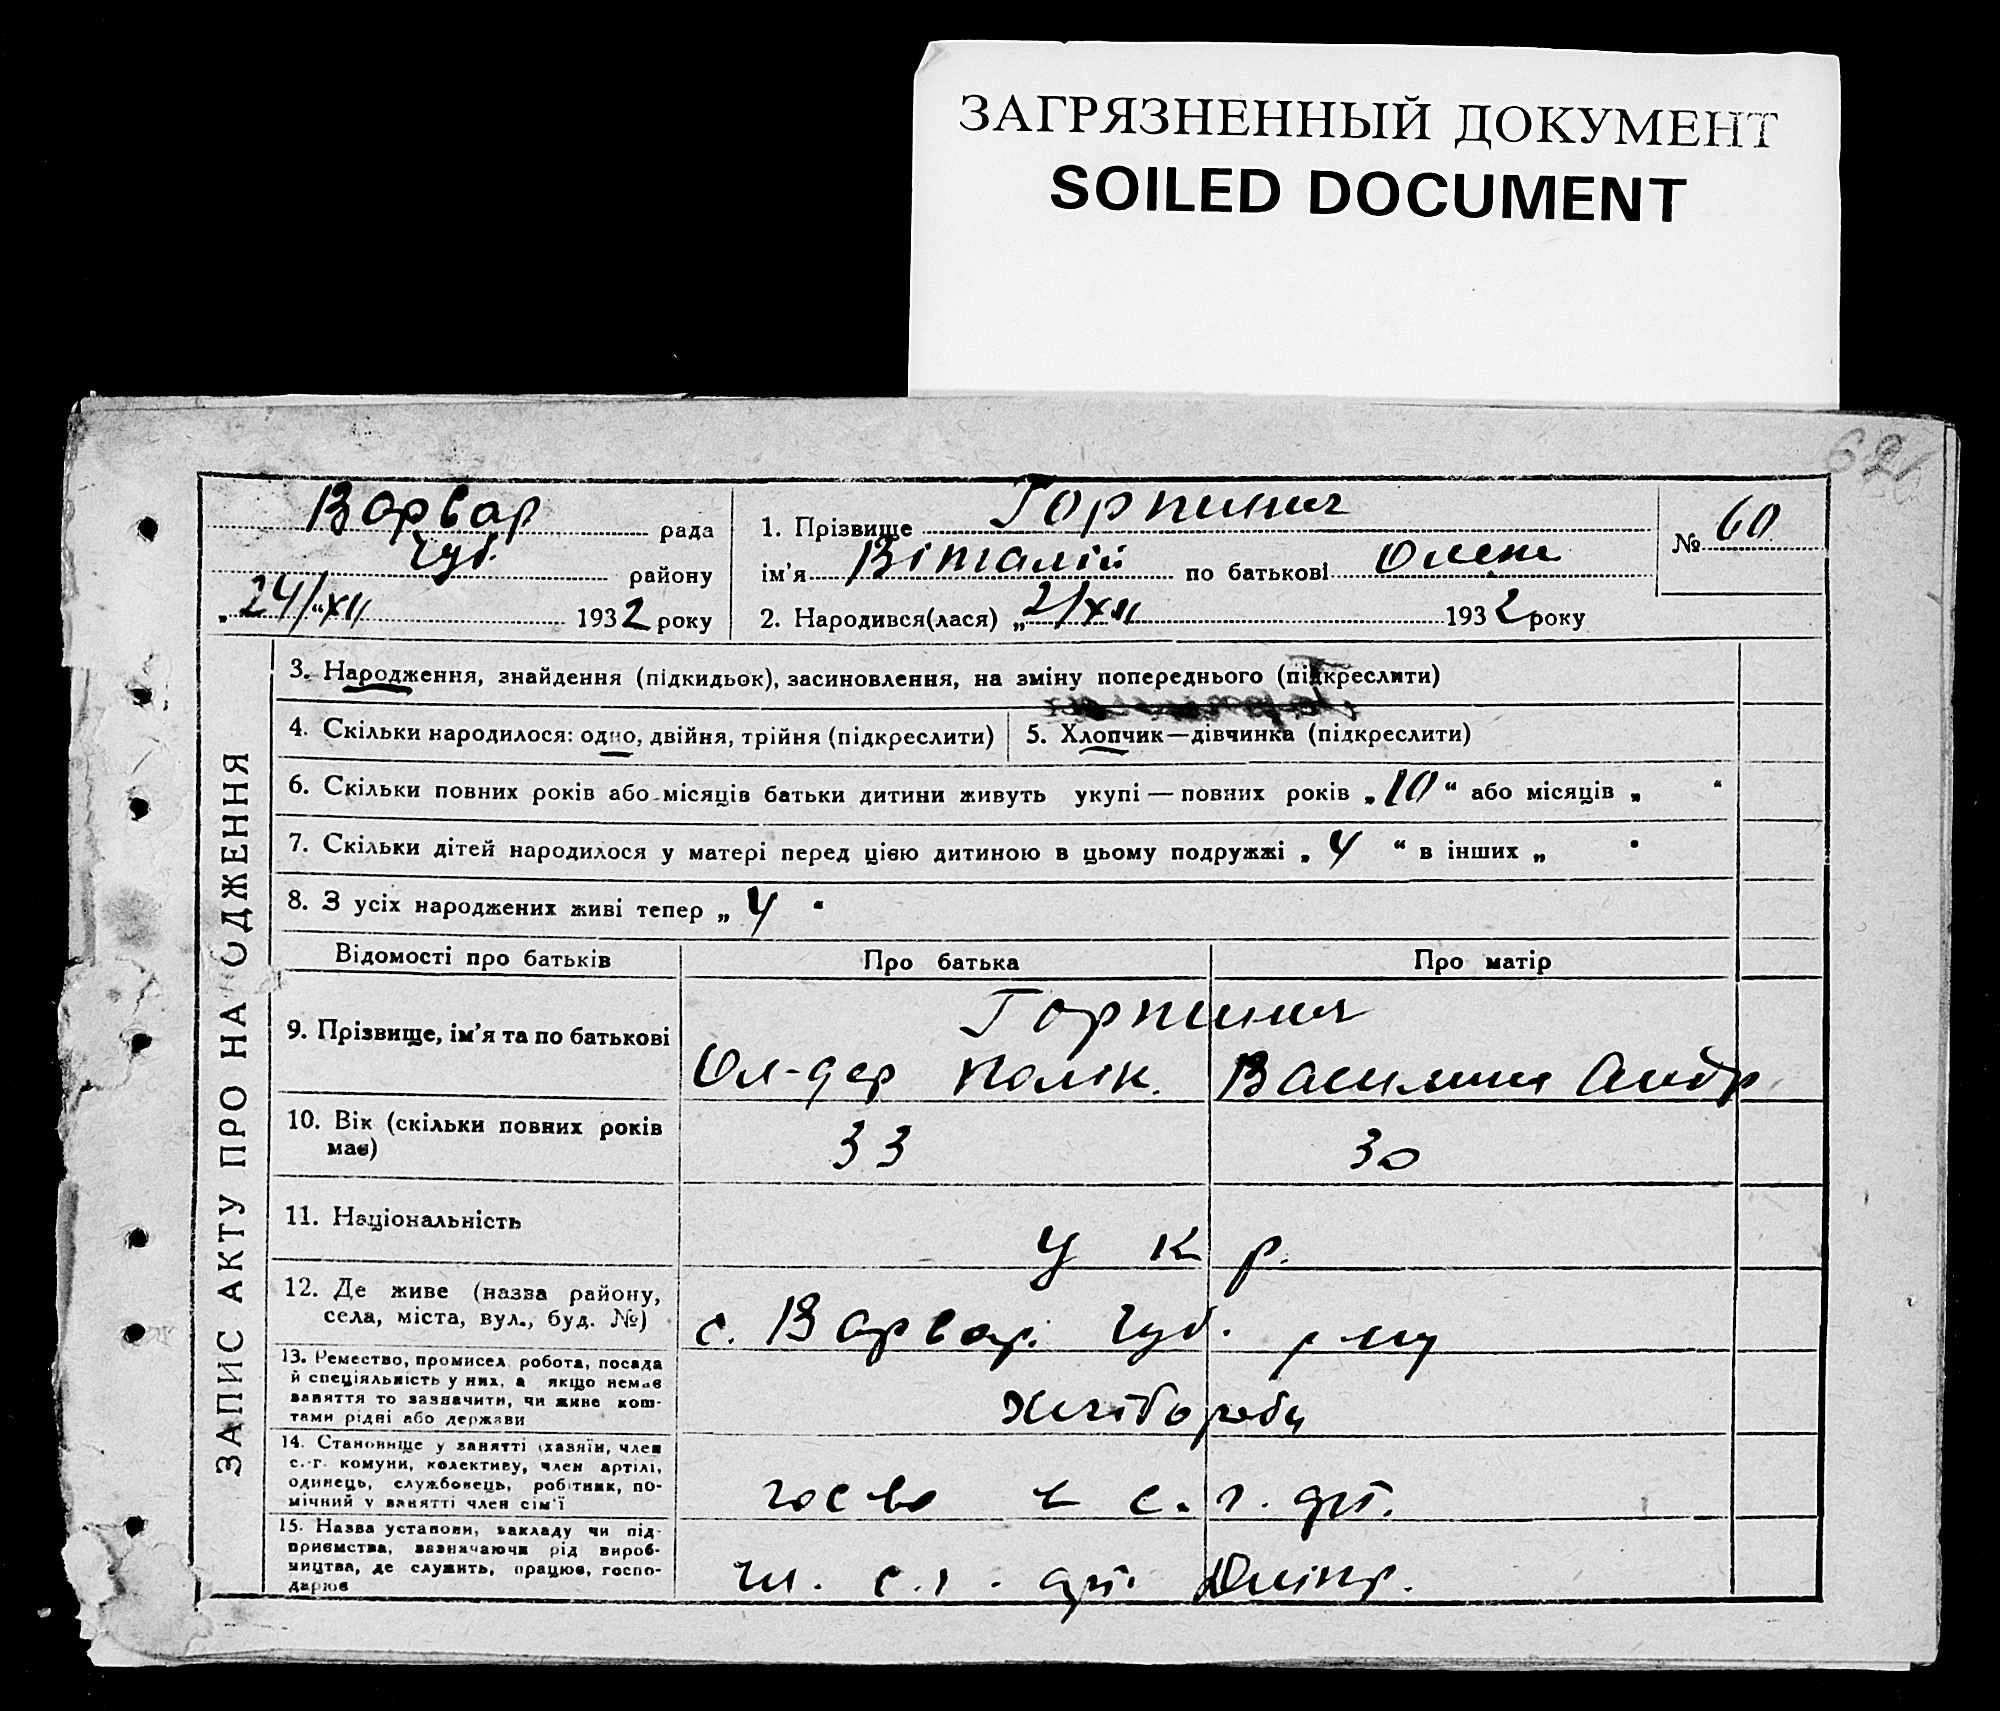 ЗАГРЯЗНЕННЫЙ ДОКУМЕНТ
SOILED DOCUMENT
Варвар рада
Чуб. району
„24/“XII 1932 року
1. Прізвище Горпинич
ім’я Віталій по батькові Олекс
2. Народився(лася) „2/XII 1932 року
№ 60
ЗАПИС АКТУ ПРО НАРОДЖЕННЯ
3. Народження, знайдення (підкидьок), засиновлення, на зміну попереднього (підкреслити)
4. Скільки народилося: одно, двійня, трійня (підкреслити)
5. Хлопчик—дівчинка (підкреслити)
6. Скільки повних років або місяців батьки дитини живуть укупі — повних років „10“ або місяців „ “
7. Скільки дітей народилося у матері перед цією дитиною в цьому подружжі „4“ в інших „ “
8. З усіх народжених живі тепер „4“
Відомості про батьків Про батька Про матір
9. Прізвище, ім’я та по батькові
Горпинич
Ол-дер Полік. Василина Андр
10. Вік (скільки повних років
має)
33 30
11. Національність
Укр.
12. Де живе (назва району,
села, міста, вул., буд. №)
с. Варвар. Чуб. р-ну
13. Ремество, промисел робота, посада
й спеціяльність у них, а якщо немає
заняття то зазначити, чи живе кош-
тами рідні або держави
Хлібороби
14. Становище у занятті (хазяїн, член
с.-г. комуни, колективу, член артілі,
одинець, службовець, робітник, по-
мічний у занятті член сім’ї
госво в с.г. арт.
15. Назва установи, закладу чи під-
приємства, зазначаючи рід вироб-
ництва, де служить, працює, госпо-
дарює
чл. с.г. арт. Дніпр.